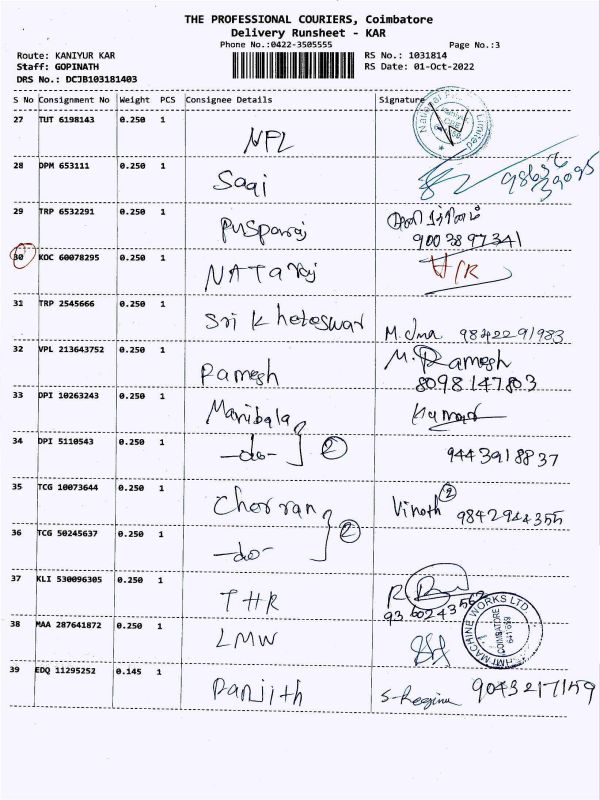 THE PROFESSIONAL COURIERS, Coimbatore
Delivery Runsheet - KAR
Phone No.:0422-3505555 Page No.:3
Route: KANIYUR KAR RS No.: 1031814
Staff: GOPINATH RS Date: 01-Oct-2022
DRS No.: DCJB103181403
S No Consignment No Weight PCS Consignee Details Signature
27 TUT 6198143 0.250 1 NPL
28 DPM 653111 0.250 1 Sagi
29 TRP 6532291 0.250 1 Pusparaj
9003897341
30 KOC 60078295 0.250 1 NATaraj H/R
31 TRP 2545666 0.250 1 Sri Kheteswar M. Uma 9842291983
32 VPL 213643752 0.250 1 Ramesh M. Ramesh
8098147803
33 DPI 10263243 0.250 1 Manibala Kumar
34 DPI 5110543 0.250 1 -do- 2 9443918837
35 TCG 10073644 0.250 1 Cherran Vinoth 2 9842944355
36 TCG 50245637 0.250 1 -do- 2
37 KLI 530096305 0.250 1 THR
9360243562
38 MAA 287641872 0.250 1 LMW
MACHINE WORKS LTD
COIMBATORE
39 EDQ 11295252 0.145 1 Ranjith S. Regina 9043217159